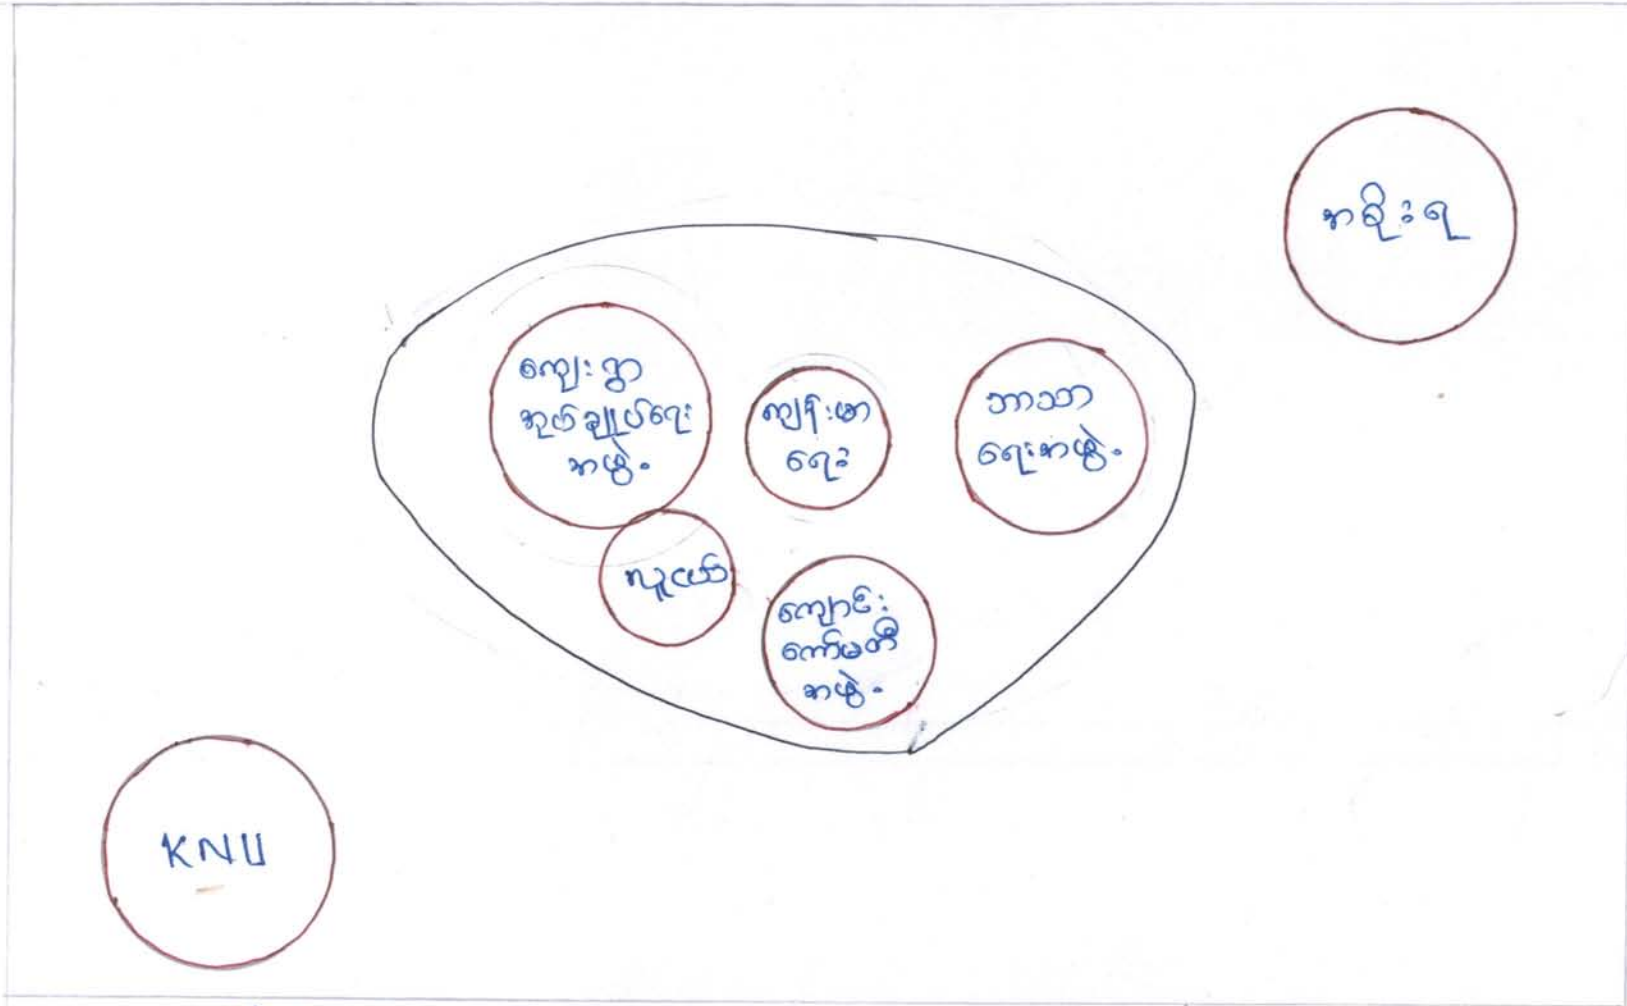 အစိုးရ
ကျေးရွာ
အုပ်ချုပ်ရေး
အဖွဲ့
ကျန်းမာ
ရေး
ဘာသာ
ရေးအဖွဲ့
လူငယ်
ကျောင်း
ကော်မတီ
အဖွဲ့
KNU